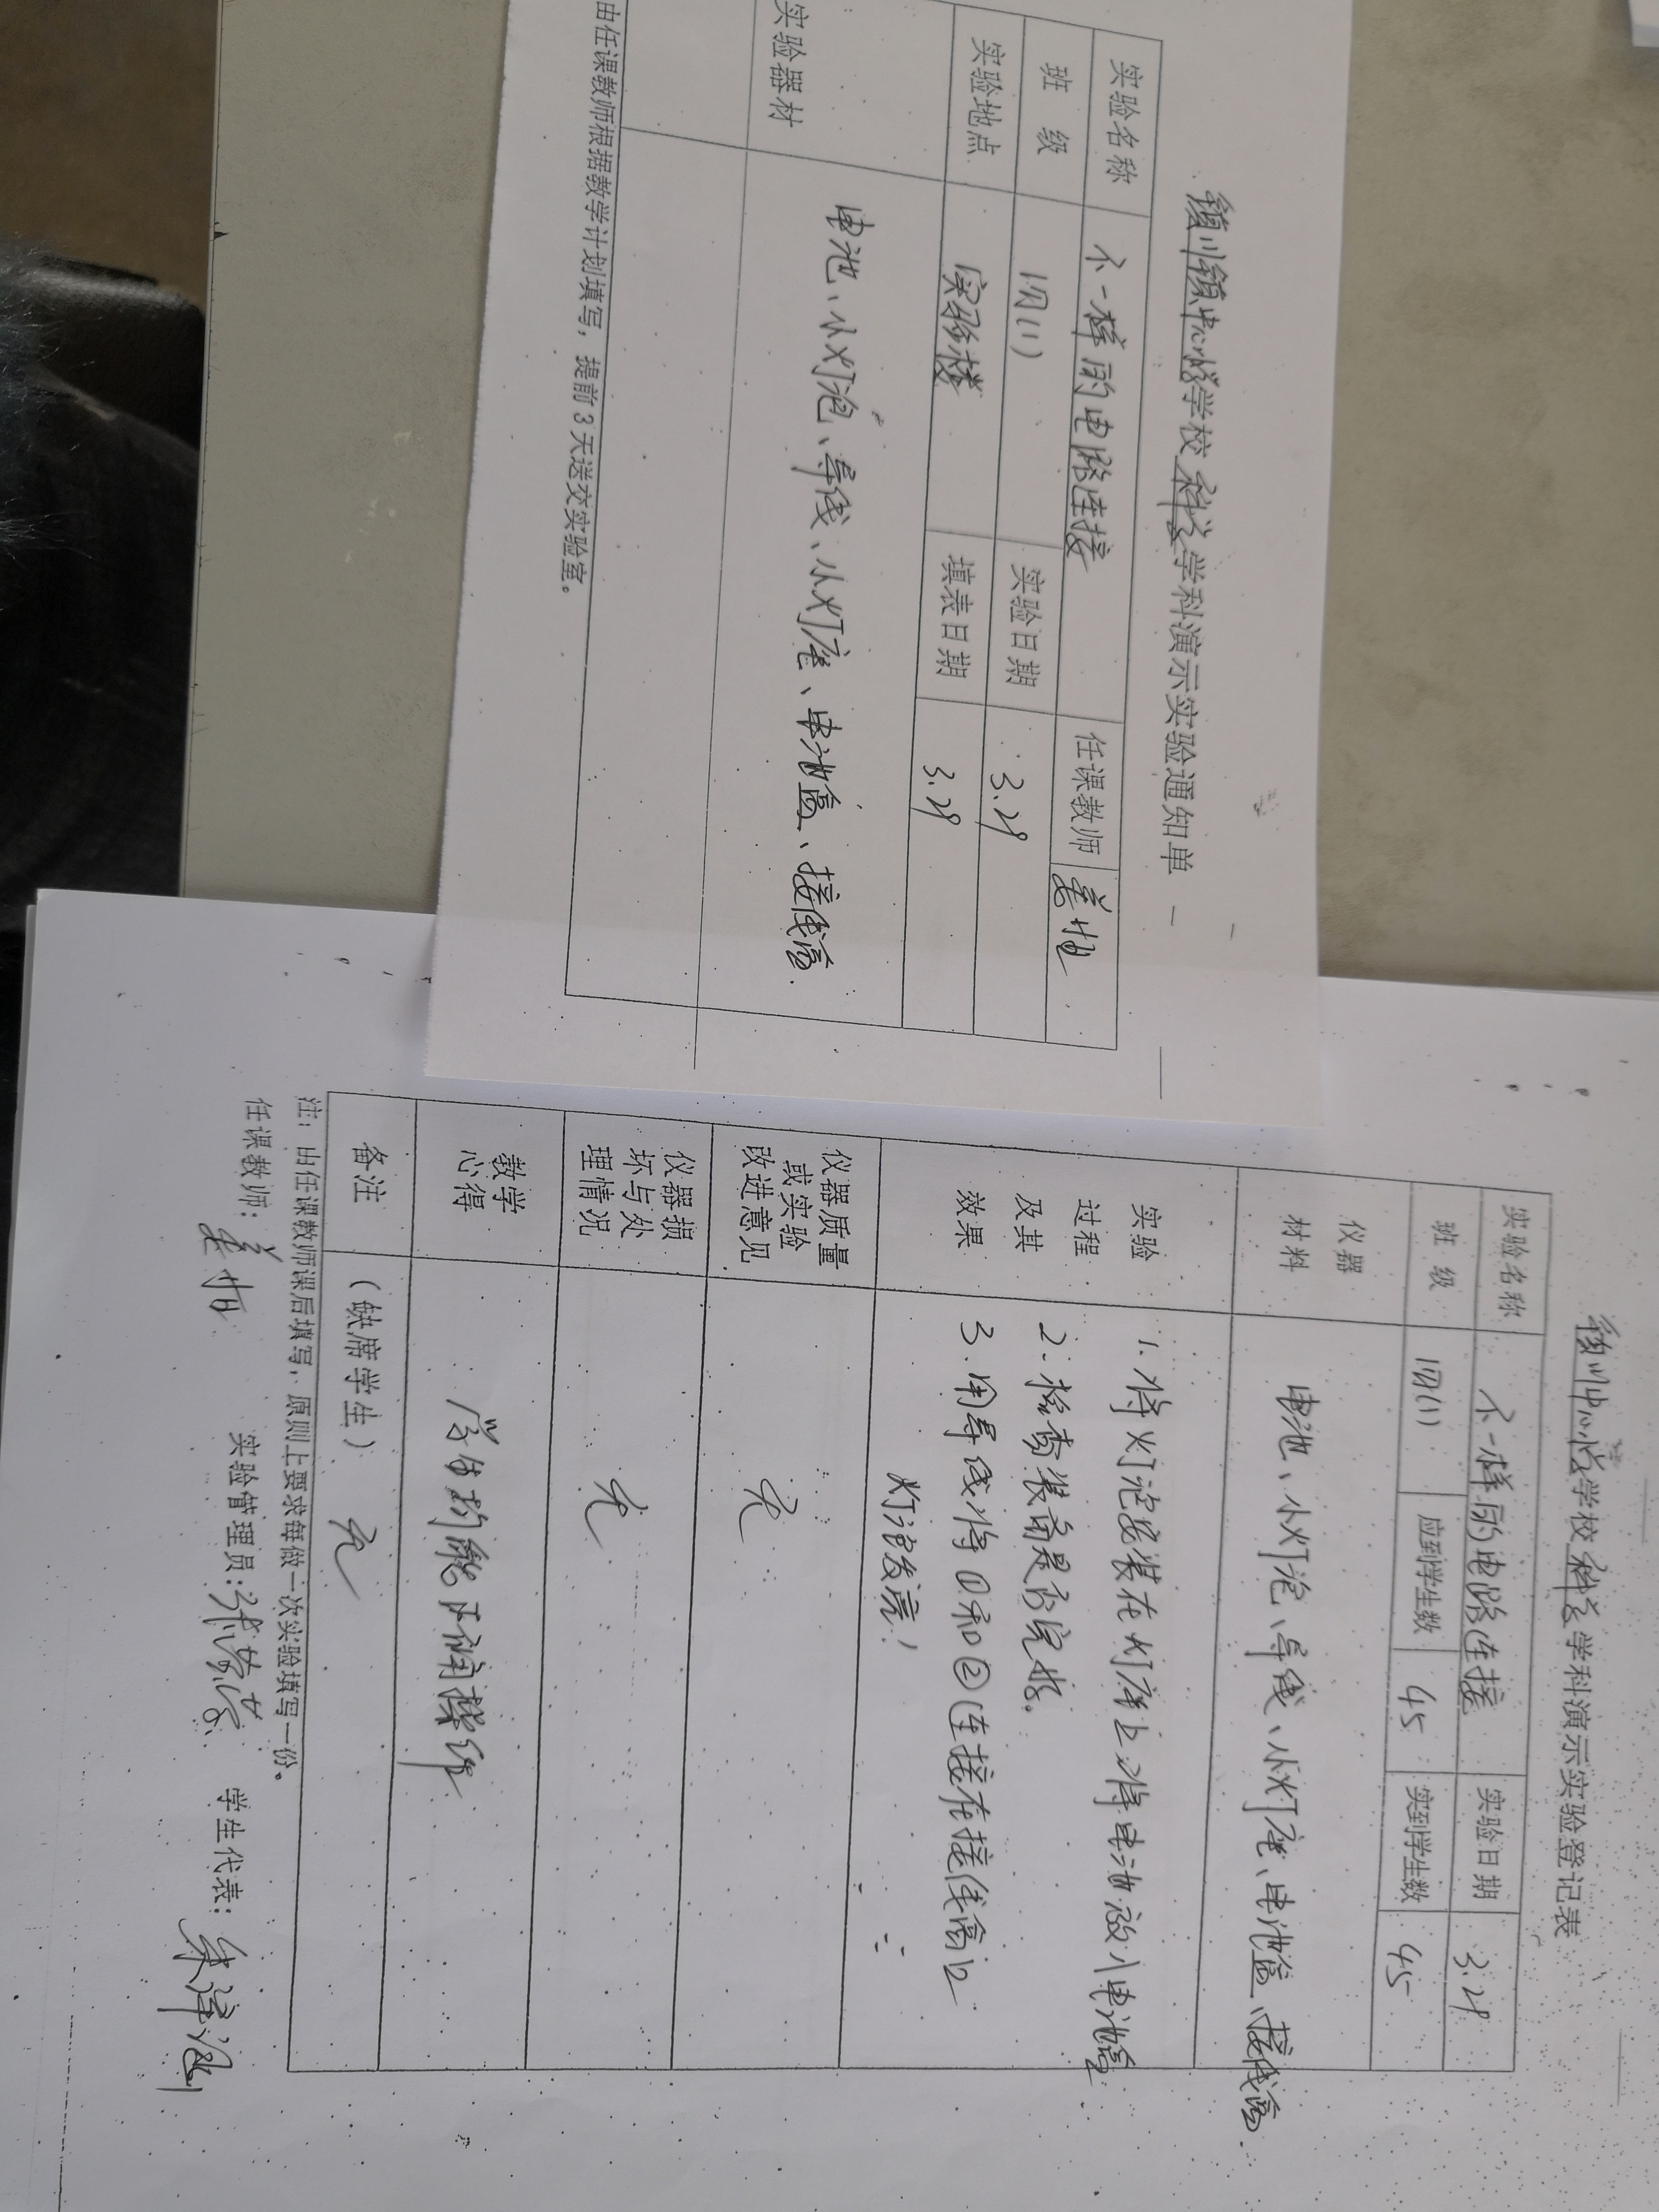 镇中心学校科学学科演示实验通知单
实验名称 不一样的电路连接 任课教师 姜怡
班 级 四(1) 实验日期 3.29
实验地点 实验楼 填表日期 3.29
实验器材 电池、小灯泡、导线、小灯座、电池盒、接线盒.
由任课教师根据教学计划填写，提前3天送交实验室。
中心学校科学学科演示实验登记表
实验名称 不一样的电路连接 实验日期 3.29
班 级 四(1) 应到学生数 45 实到学生数 45
仪器材料 电池、小灯泡、导线、小灯座、电池盒、接线盒.
实验过程及其效果
1.将灯泡安装在灯座上,将电池放入电池盒
2.检查装商是否完好。
3.用导线将①和②连接在接线盒上
灯泡发亮！
仪器质量或实验改进意见 无
仪器损坏与处理情况 无
教学心得 学生均能正确操作
备注 (缺席学生) 无
注：由任课教师课后填写，原则上要求每做一次实验填写一份。
任课教师: 姜怡 实验管理员: 学生代表: